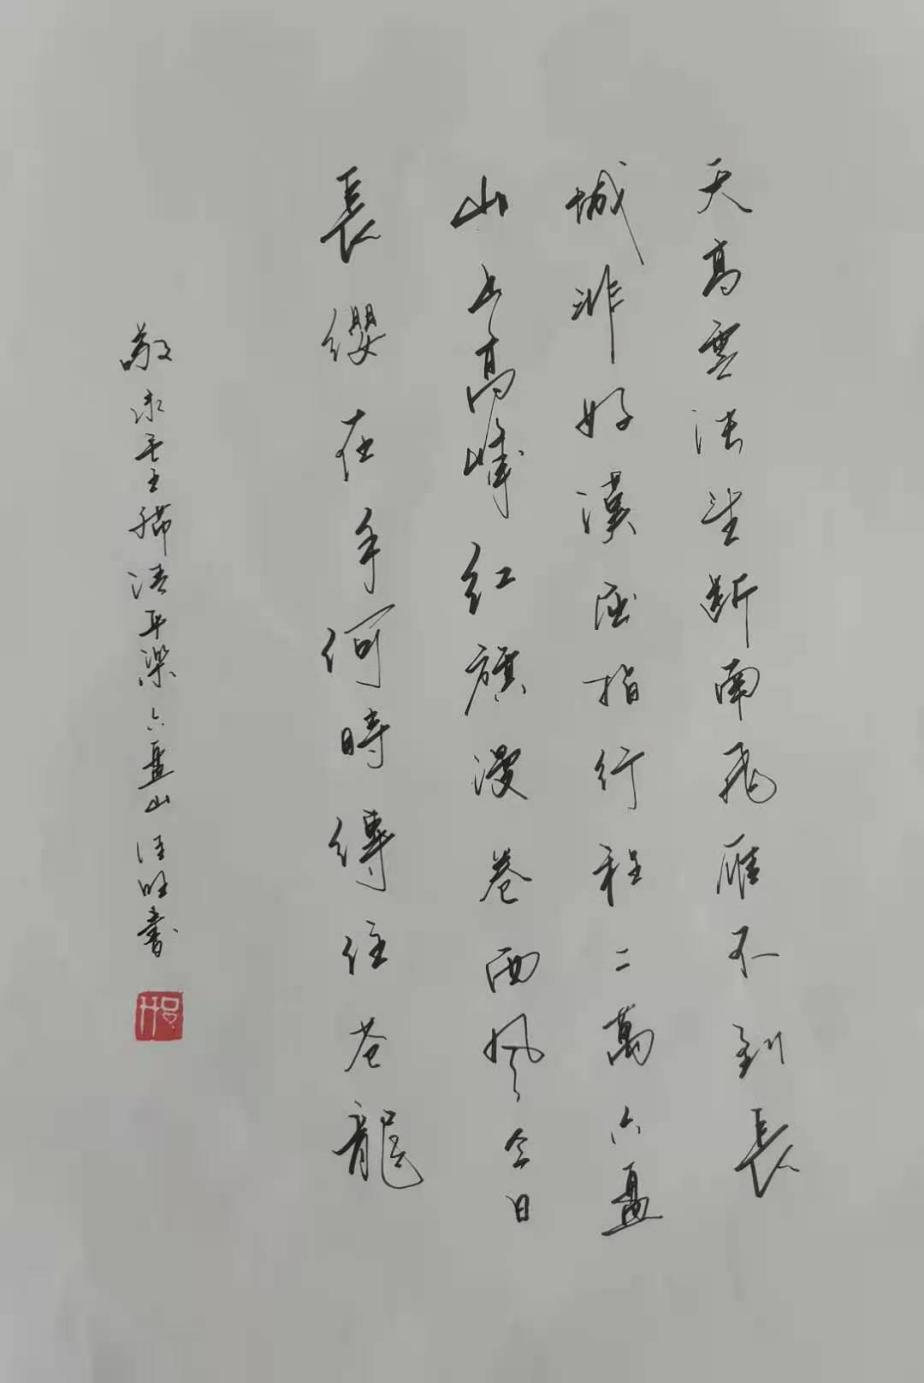 天高雲淡望斷南飛雁不到長
城非好漢屈指行程二萬六盤
山上高峰红旗漫卷西风今日
長纓在手何時縛住苍龍
敬录毛主席清平樂六盤山旺書